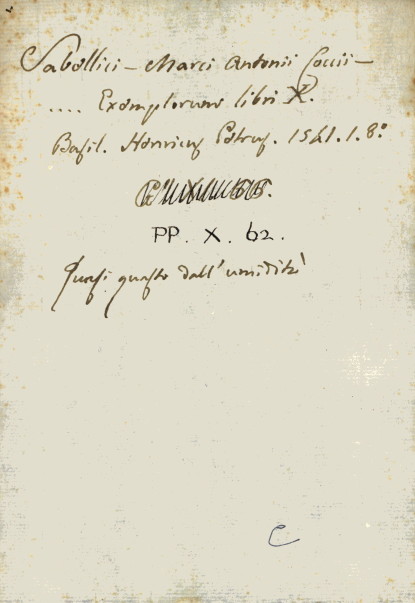 Sabellici - Marci Antonii Coccii -
.... Exemplorum libri X.
Basil. Henricus Petrus. 1541. 1. 8.º
PP. X. 62.
Quasi guasto dall'umidità
C